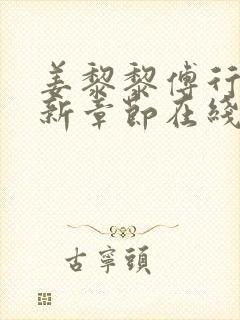 姜黎黎傅行
新章節在綫
古寧頭